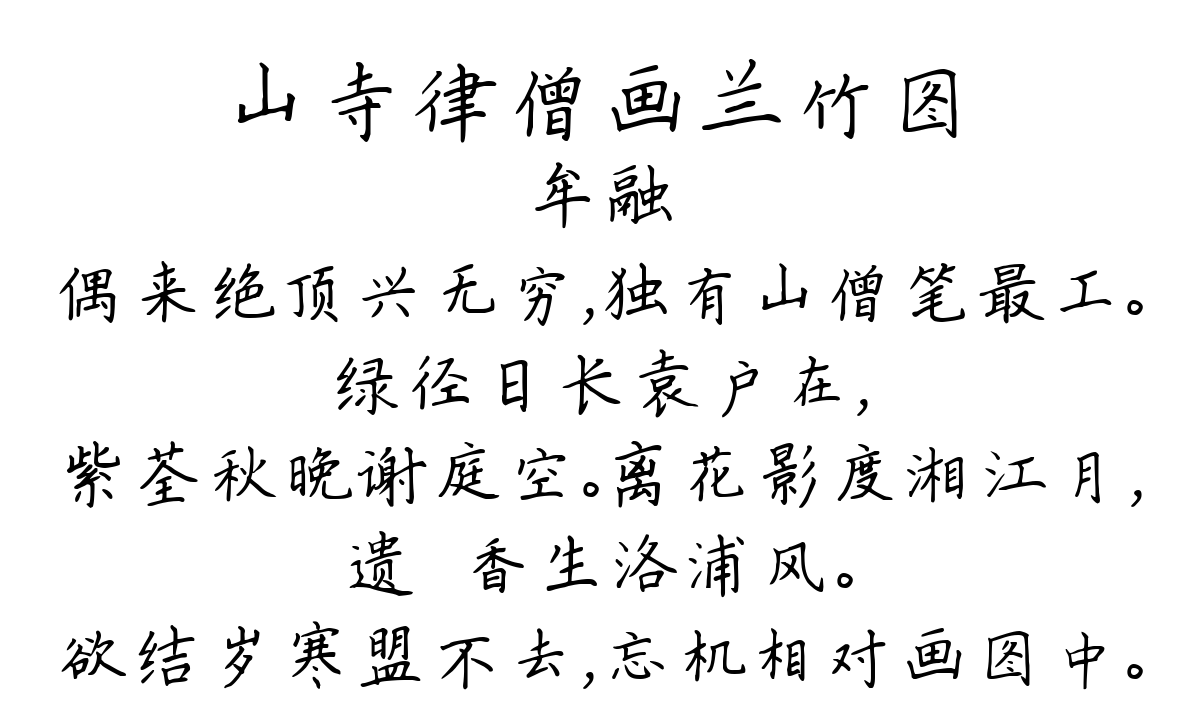 山寺律僧画兰竹图
牟融
偶来绝顶兴无穷,独有山僧笔最工。
绿径日长袁户在,
紫荃秋晚谢庭空。离花影度湘江月,
遗 香生洛浦风。
欲结岁寒盟不去,忘机相对画图中。